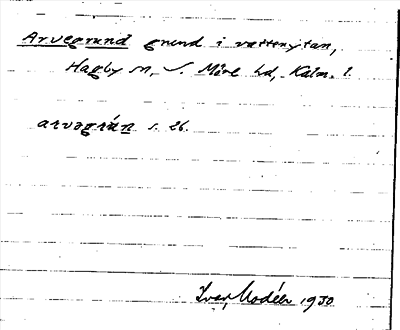 Arvegrund grund i vattenytan,
Hagby sn, S. Möre hd, Kalm. l.
arvəgrán s. 26.
Ivar Modéer 1930